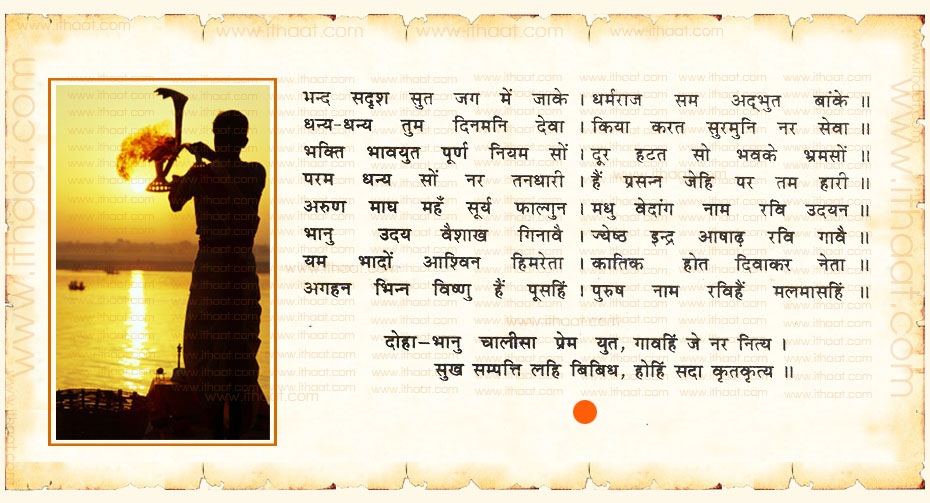 भन्द सदृश सुत जग में जाके । धर्मराज सम अद्भुत बांके ॥
धन्य-धन्य तुम दिनमनि देवा । किया करत सुरमुनि नर सेवा ॥
भक्ति भावयुत पूर्ण नियम सों । दूर हटत सो भवके भ्रमसों ॥
परम धन्य सों नर तनधारी । हैं प्रसन्न जेहि पर तम हारी ॥
अरुण माघ महँ सूर्य फाल्गुन । मधु वेदांग नाम रवि उदयन ॥
भानु उदय वैशाख गिनावै । ज्येष्ठ इन्द्र आषाढ़ रवि गावै ॥
यम भादों आश्विन हिमरेता । कातिक होत दिवाकर नेता ॥
अगहन भिन्न विष्णु हैं पूसहिं । पुरुष नाम रविहैं मलमासहिं ॥
दोहा–भानु चालीसा प्रेम युत, गावहिं जे नर नित्य ।
सुख सम्पत्ति लहि बिबिध, होहिं सदा कृतकृत्य ॥
www.ithaat.com